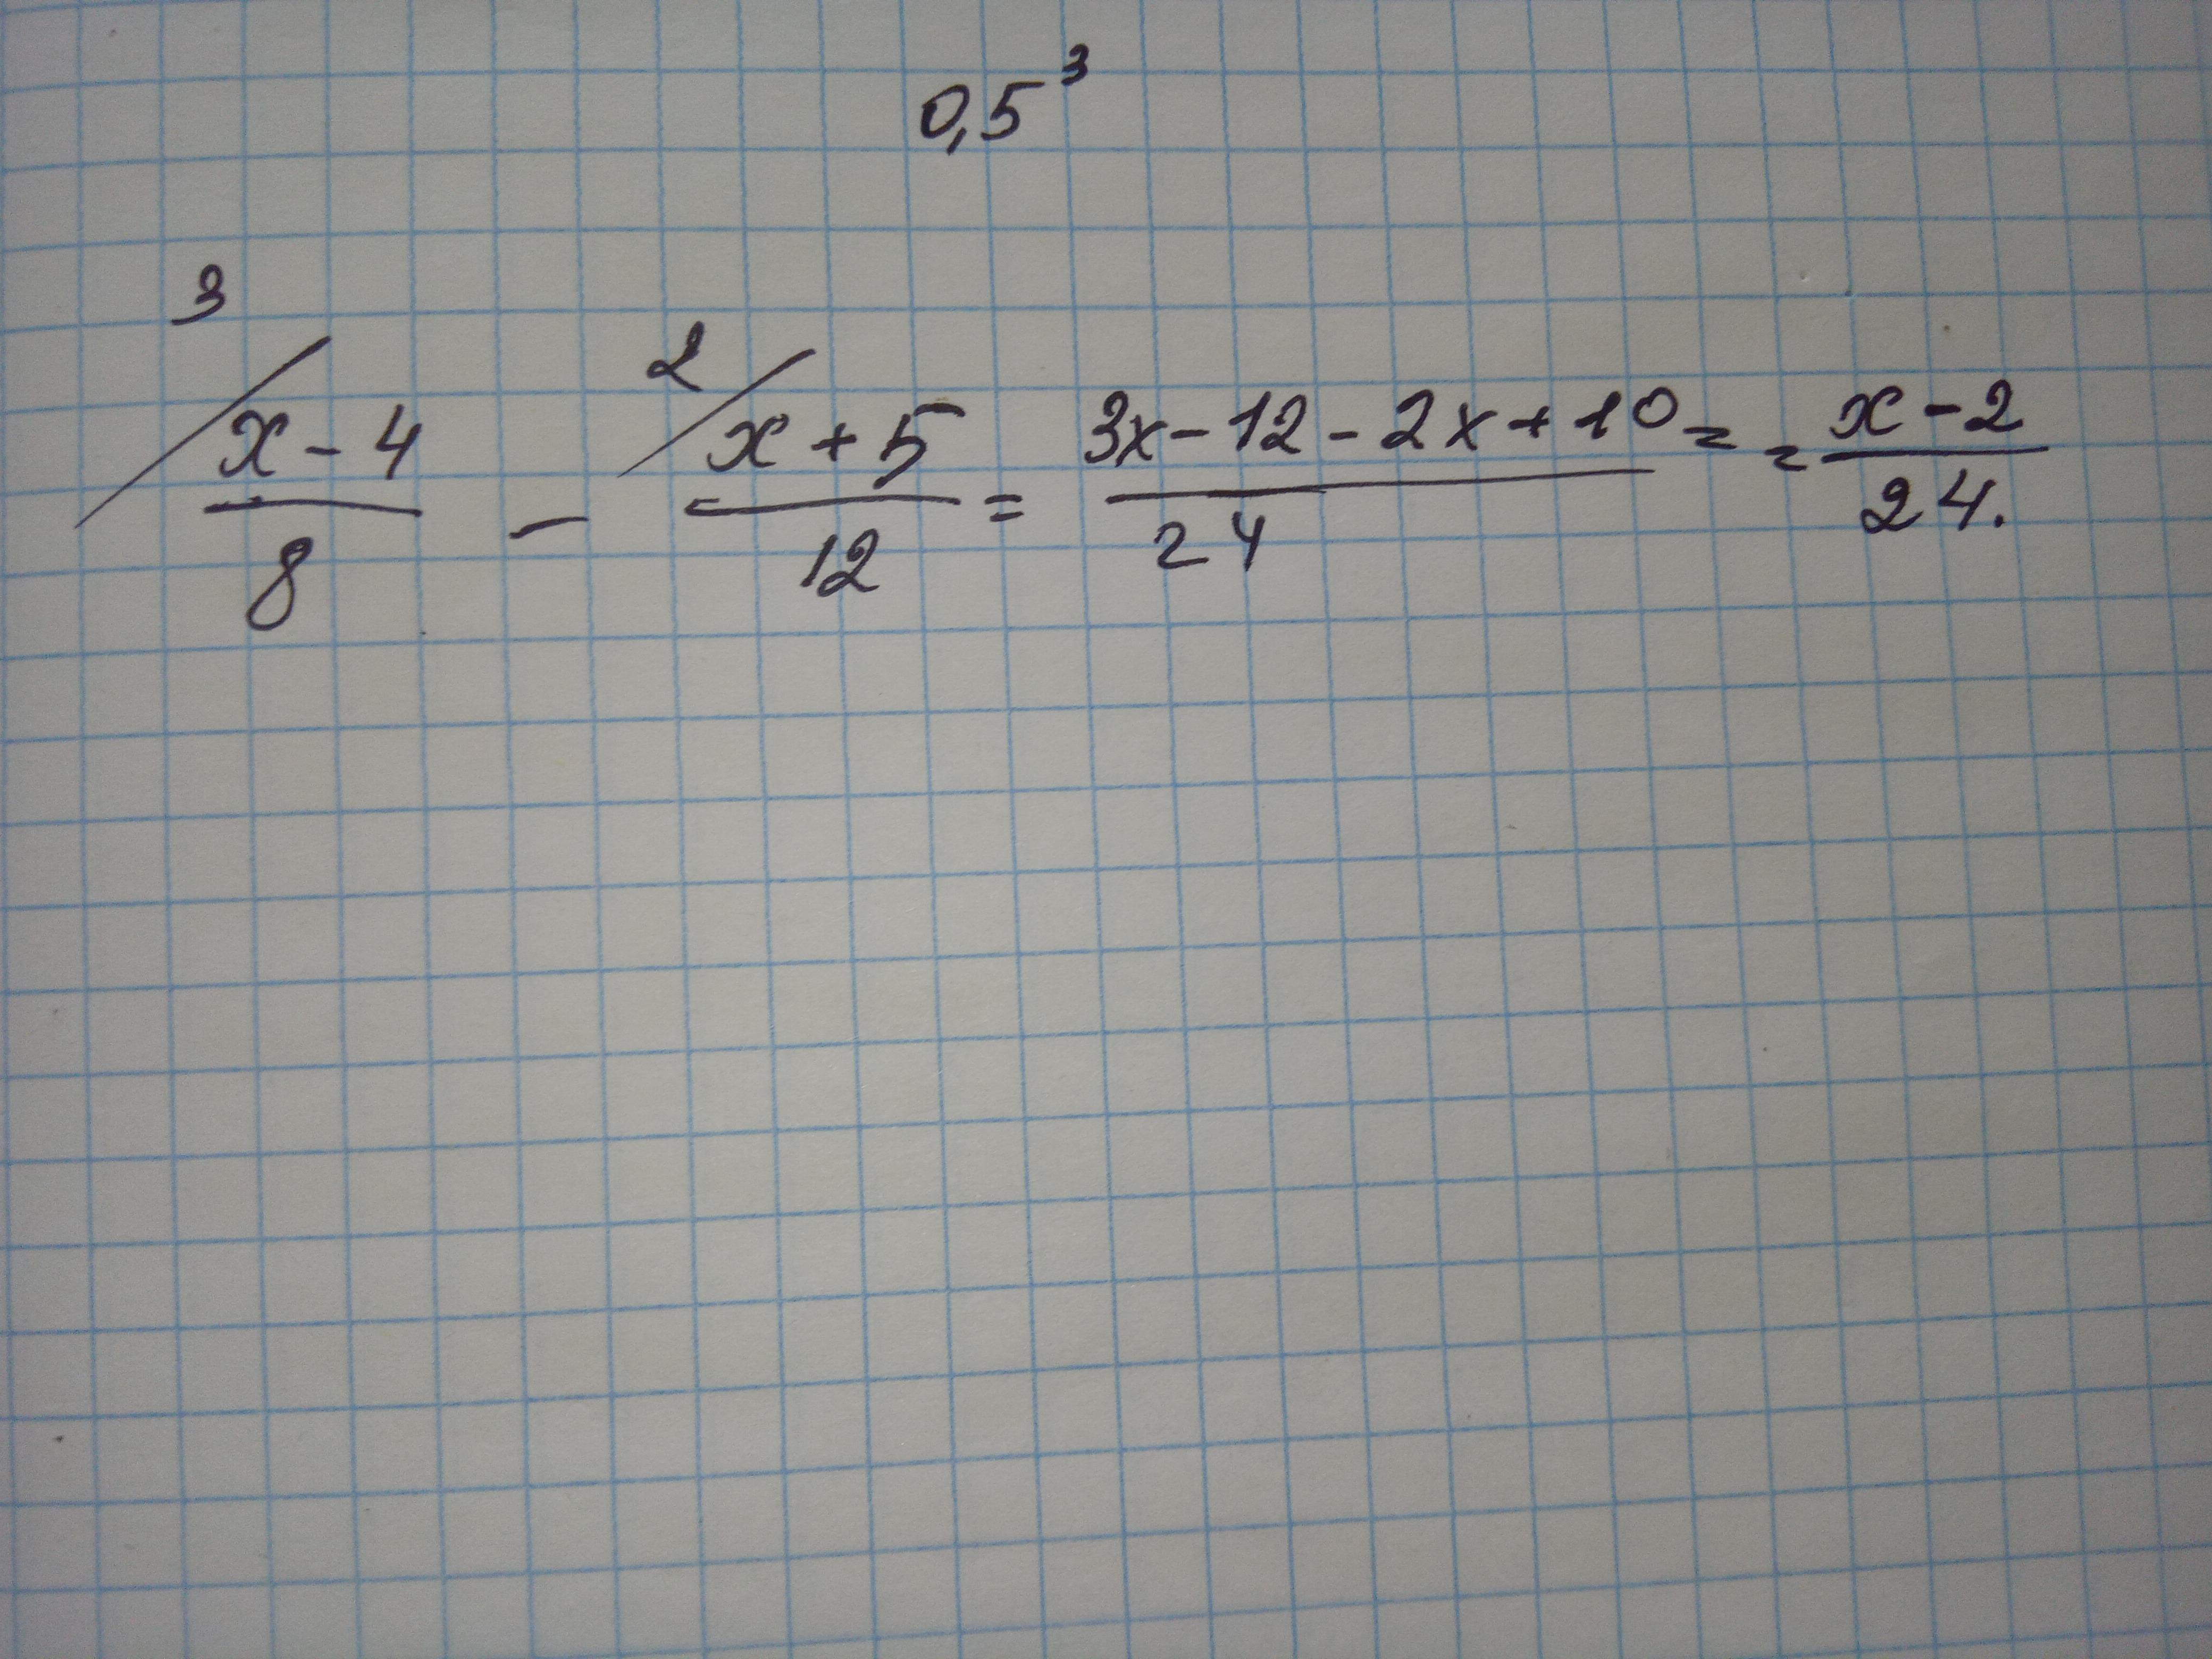 0,5³
³/ (x - 4)/8 - ²/ (x + 5)/12 = (3x - 12 - 2x + 10)/24 = = (x - 2)/24.